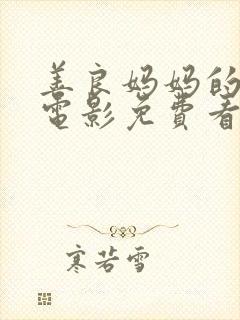 善良妈妈的
電影免費看
寒若雪